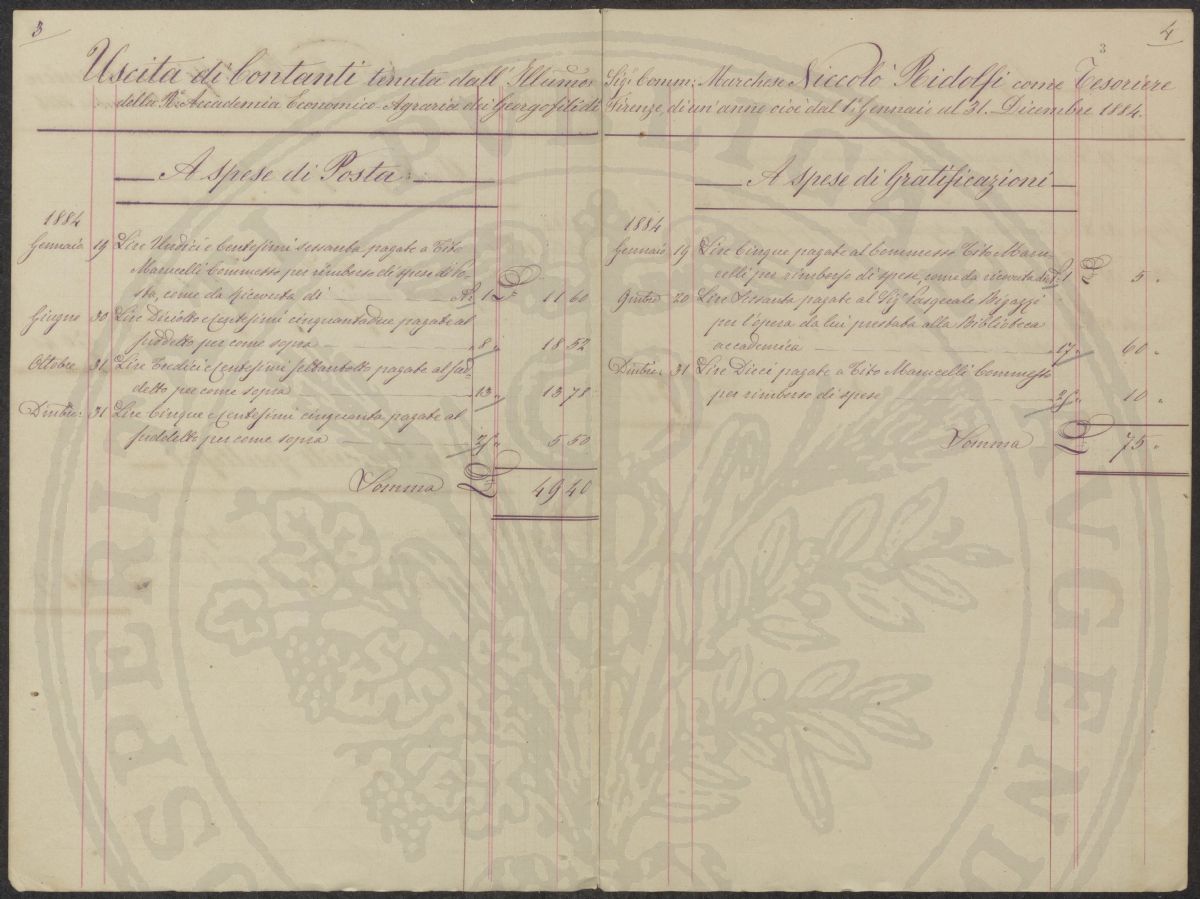 3
Uscita di Contanti tenuta dall' Illumo Sigr Comm: Marchese Niccolò Ridolfi come Tesoriere
della Ra Accademia Economico Agraria dei Georgofili di Firenze, di un'anno cioè dal 1o Gennaio al 31. Dicembre 1884.
A spese di Posta
1884
Gennaio 19 Lire Undici e Centesimi sessanta pagate a Tito
Marucelli Commesso per rimborso di spese di Po-
sta, come da Ricevuta di No 1 £ 11 60
Giugno 30 Lire Diciotto e Centesimi cinquantadue pagate al
suddetto per come sopra " 8 " 18 52
Ottobre 31 Lire Tredici e Centesimi settantotto pagate al sud-
detto per come sopra " 13 " 13 78
Dmbre: 31 Lire Cinque e Centesimi cinquanta pagate al
suddetto per come sopra " " 5 50
Somma £ 49 40
4
3
A spese di Gratificazioni
1884
Gennaio 19 Lire Cinque pagate al Commesso Tito Maru-
celli per rimborso di spese, come da ricevuta di No 1 £ 5 "
20 Lire Sessanta pagate al Sigr Pasquale Bigazzi
per l'opera da lui prestata alla Biblioteca
accademica " 17 " 60 "
Dmbre: 31 Lire Dieci pagate a Tito Marucelli Commesso
per rimborso di spese " " 10 "
Somma £ 75 "
PUBLICA
SPERI
AUGENDU